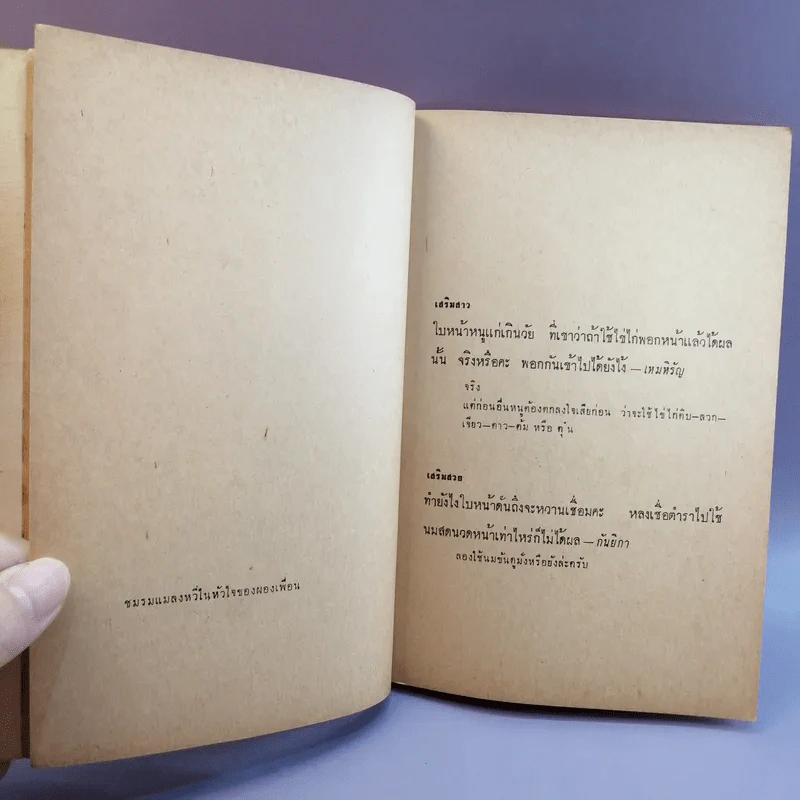 ชมรมแมลงหวี่ในหัวใจของผองเพื่อน
เสริมสาว
ใบหน้าหนูแก่เกินวัย ที่เขาว่าถ้าใช้ไข่ไก่พอกหน้าแล้วได้ผล
นั้น จริงหรือคะ พอกกันเข้าไปได้ยังไง้ — เหมหิรัญ
จริง
แต่ก่อนอื่นหนูต้องตกลงใจเสียก่อน ว่าจะใช้ไข่ไก่ดิบ—ลวก—
เจียว—ดาว—ต้ม หรือ ตุ๋น
เสริมสวย
ทำยังไงใบหน้าดั้นถึงจะหวานเชื่อมคะ หลงเชื่อตำราไปใช้
นมสดนวดหน้าเท่าไหร่ก็ไม่ได้ผล — กันยิกา
ลองใช้นมข้นดูมั่งหรือยังล่ะครับ